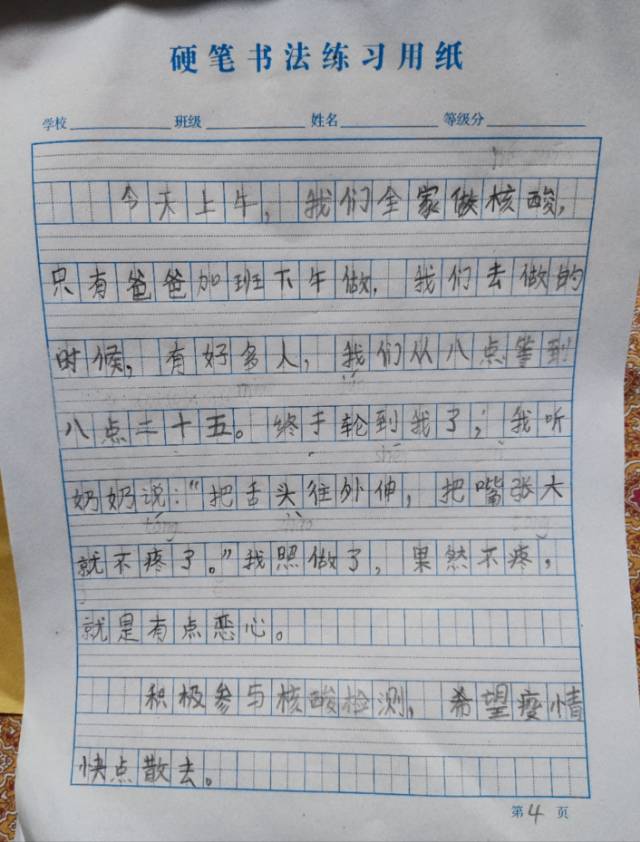 硬笔书法练习用纸
学校 班级 姓名 等级分
今天上午，我们全家做核酸，
只有爸爸加班下午做，我们去做的
时候，有好多人，我们从八点等到
八点二十五。终于轮到我了，我听
奶奶说：“把舌头往外伸，把嘴张大
就不疼了。”我照做了，果然不疼，
就是有点恋心。
积极参与核酸检测，希望疫情
快点散去。
第4页